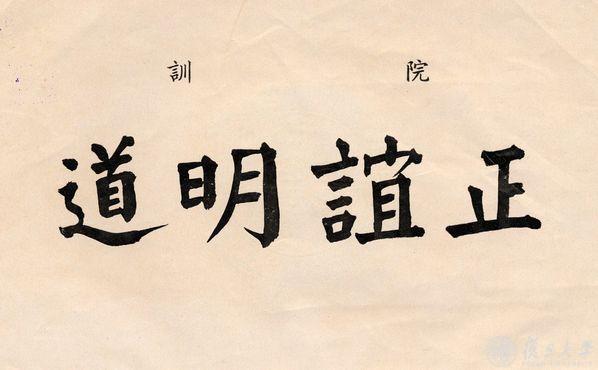 院訓
正誼明道
復旦大學